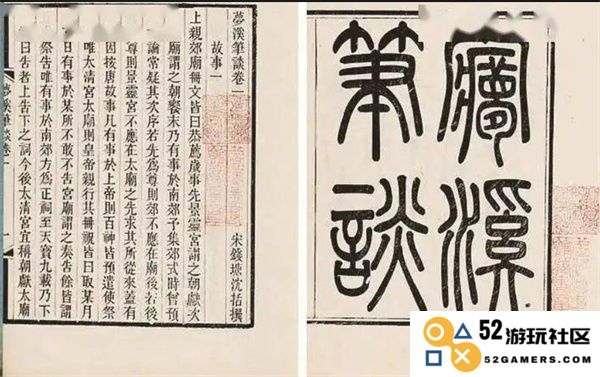 夢溪筆談卷一 宋錢塘沈括撰
故事一
上親郊廟冊文皆曰恭薦歲事先景靈宮謂之朝獻次
廟謂之朝饗末乃有事於南郊予集郊式時曾預
論常疑其次序若先為尊則郊不應在廟後若後
尊則景靈宮不應在太廟之先求其所從來蓋有
因按唐故事凡有事於上帝則百神皆預遣使祭
唯太清宮太廟則皇帝親行其冊祝皆曰取某月
日有事於某所不敢不告宮廟謂之奏告餘皆謂
祭告唯有事於南郊方為正祠至天寶九載乃下
曰告者上告下之詞今後太清宮宜稱朝獻太廟
夢溪筆談卷一
夢溪
筆談
52游玩社区
52GAMERS.COM